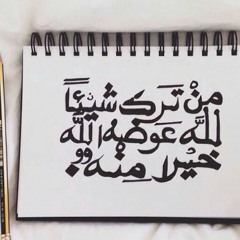 مِنْ تَرَكَ شَيْئًا
لله عَوضَه الله
خيرا مِنْه